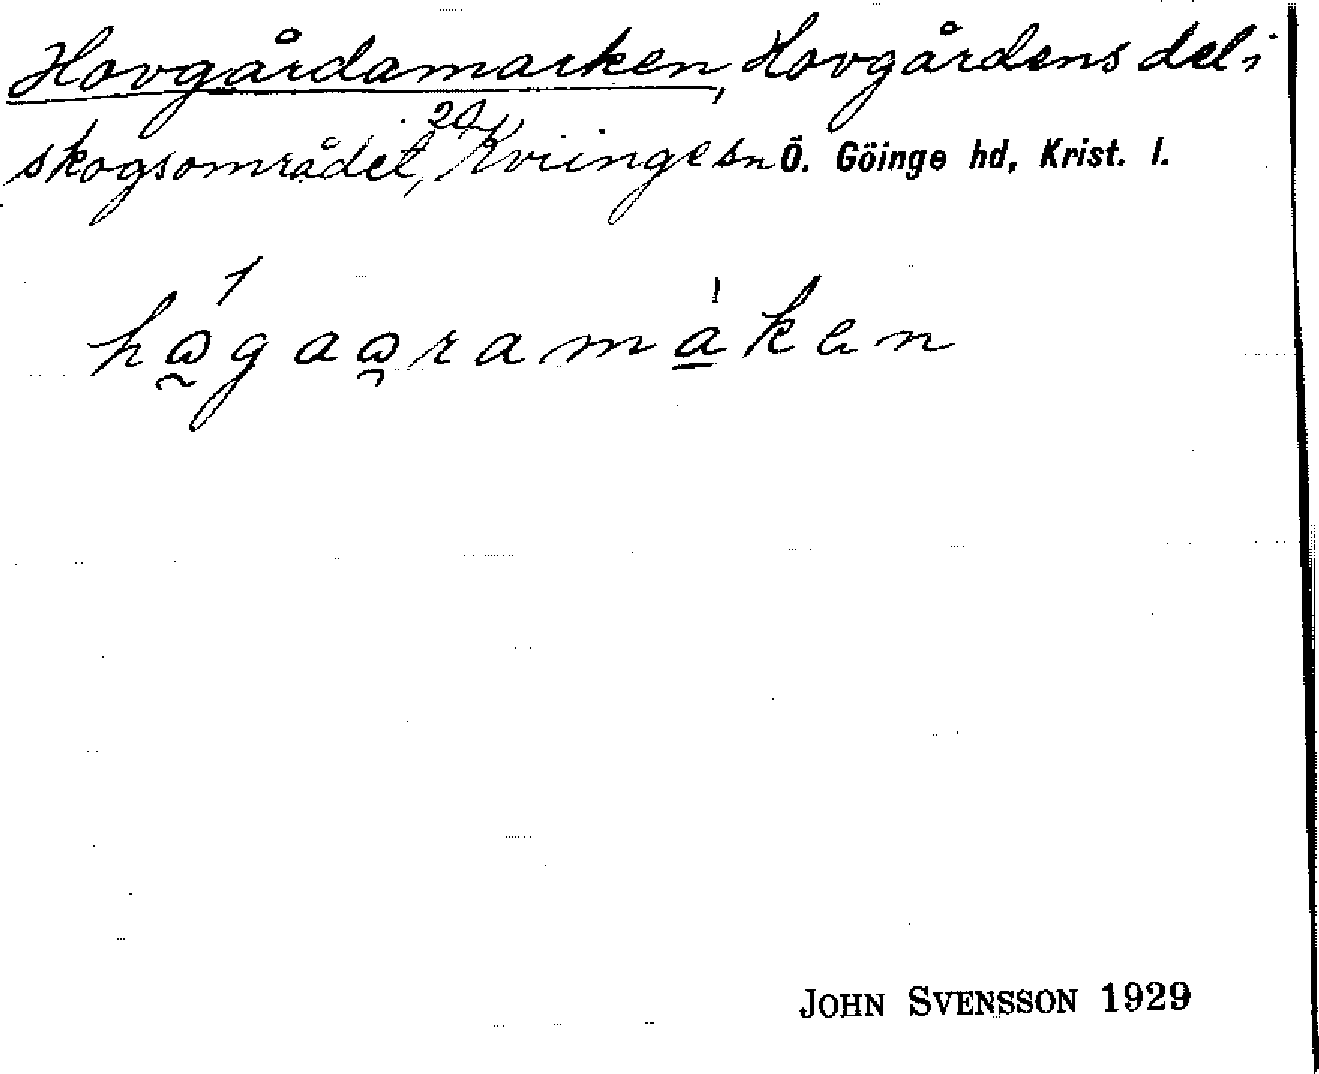 Hovgårdamarken, Hovgårdens del i
skogsområdet, 20 Kviinge sn Ö. Göinge hd, Krist. l.
hågaåramaken
JOHN SVENSSON 1929